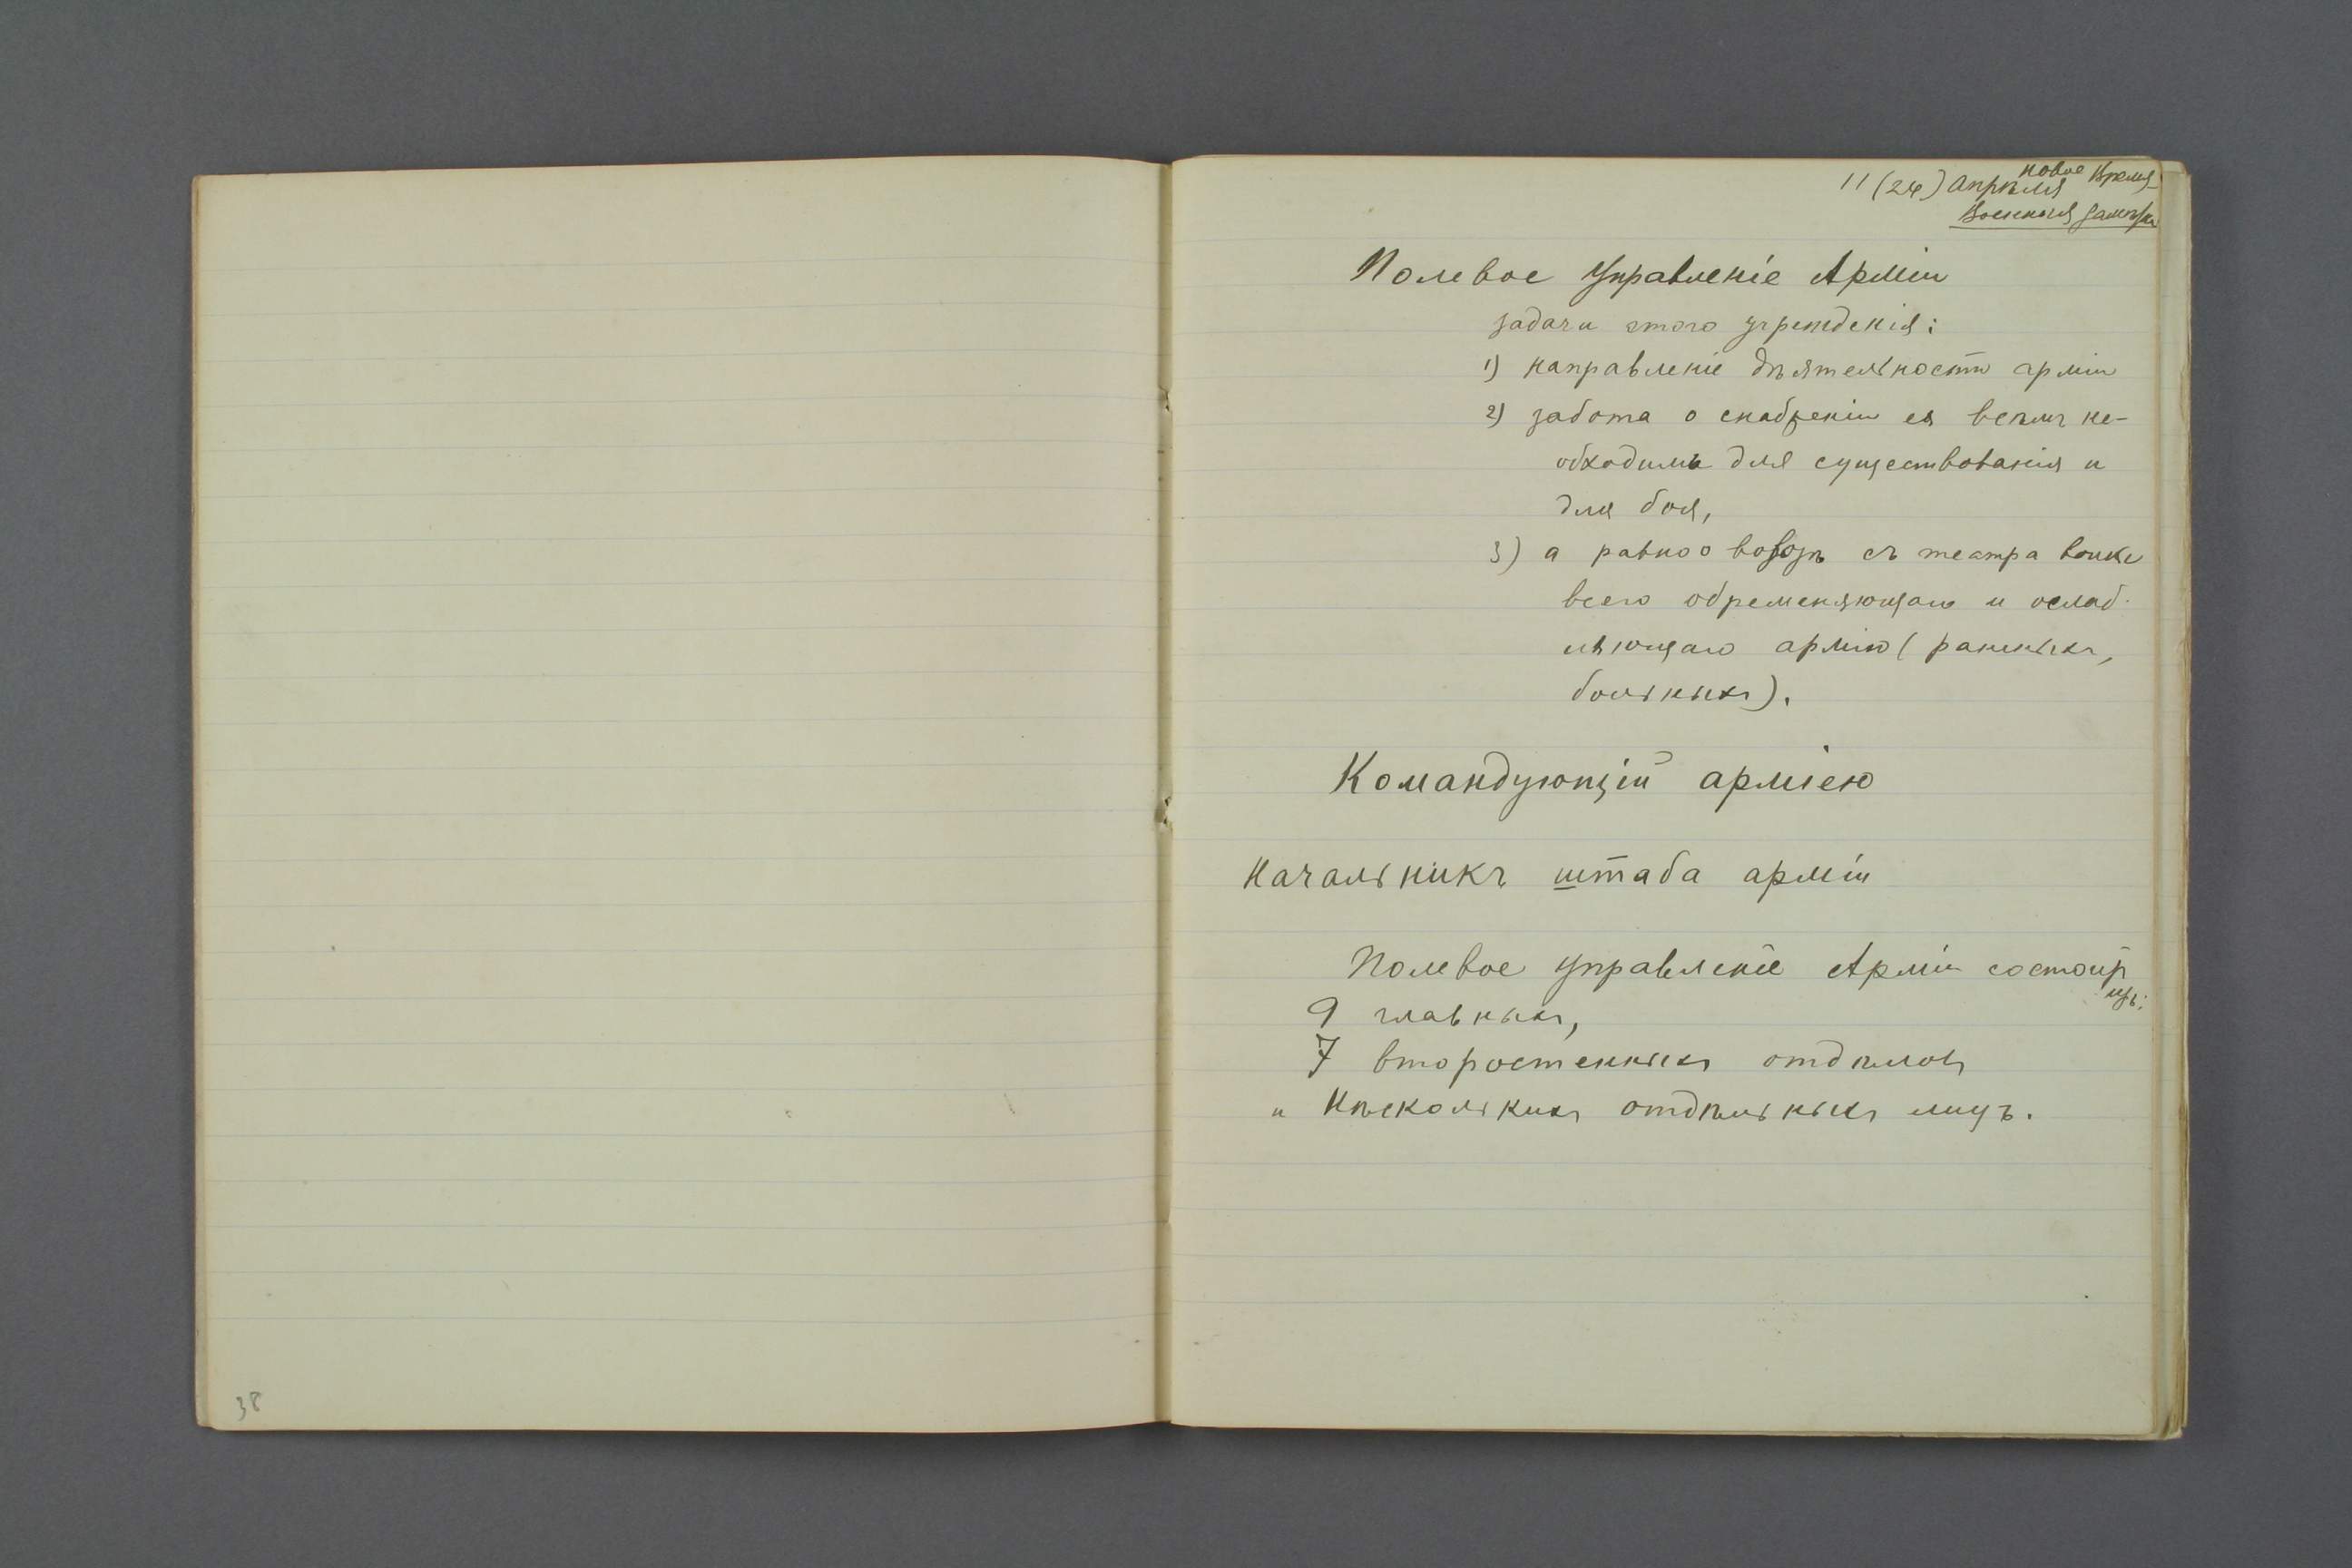 новое Время
11 (24) Апрѣля
Военныя замѣтки
Полевое Управленіе Арміи
задачи этого учрежденія:
1) направленіе дѣятельности арміи
2) забота о снабженіи ея всѣмъ не-
обходимъ для существованія и
для боя,
3) а равно о вывозѣ съ театра войны
всего обременяющаго и ослаб-
ляющаго армію (раненыхъ,
больныхъ).
Командующій арміею
Начальникъ штаба арміи
Полевое управленіе Арміи состоитъ
изъ:
9 главныхъ,
7 второстепенныхъ отдѣловъ
и Нѣсколькихъ отдѣльныхъ лицъ.
38